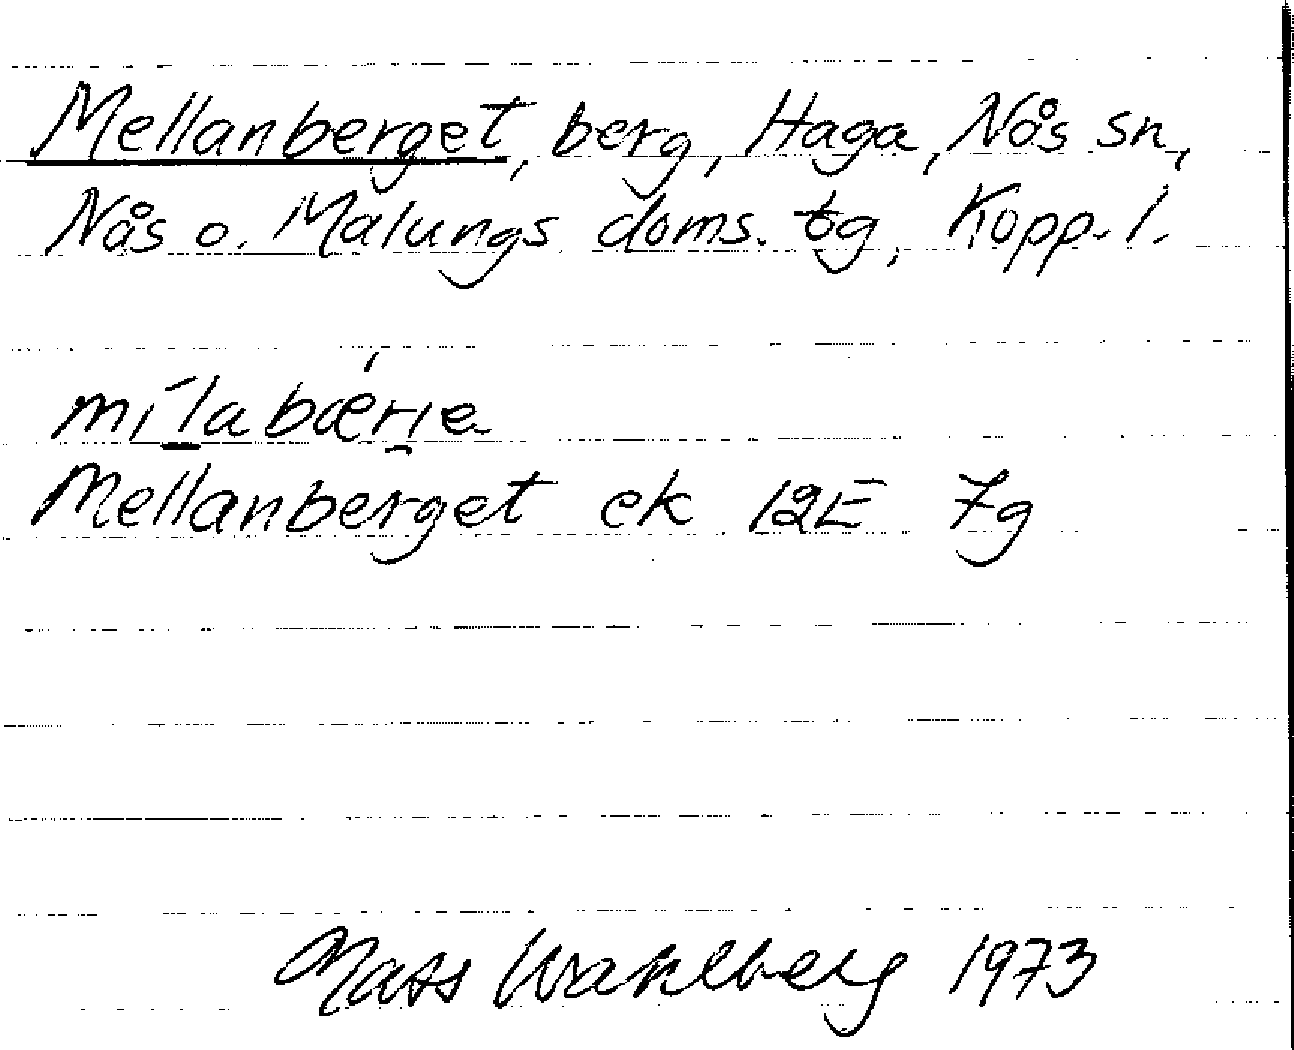 Mellanberget, berg, Haga, Nås sn,
Nås o. Malungs doms. tg, Kopp. l.
mīlabærje
Mellanberget ek 12E 7g
Mats Wahlberg 1973